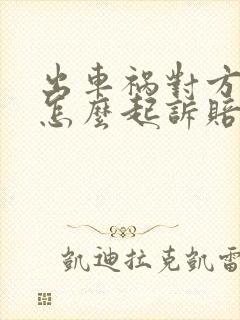 出車祸對方
怎麼起訴賠
凱迪拉克凱雷